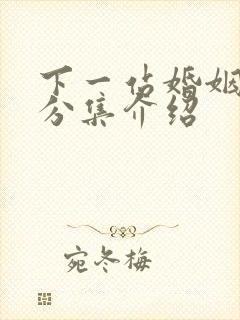 下一站婚姻
分集介绍
宛冬梅